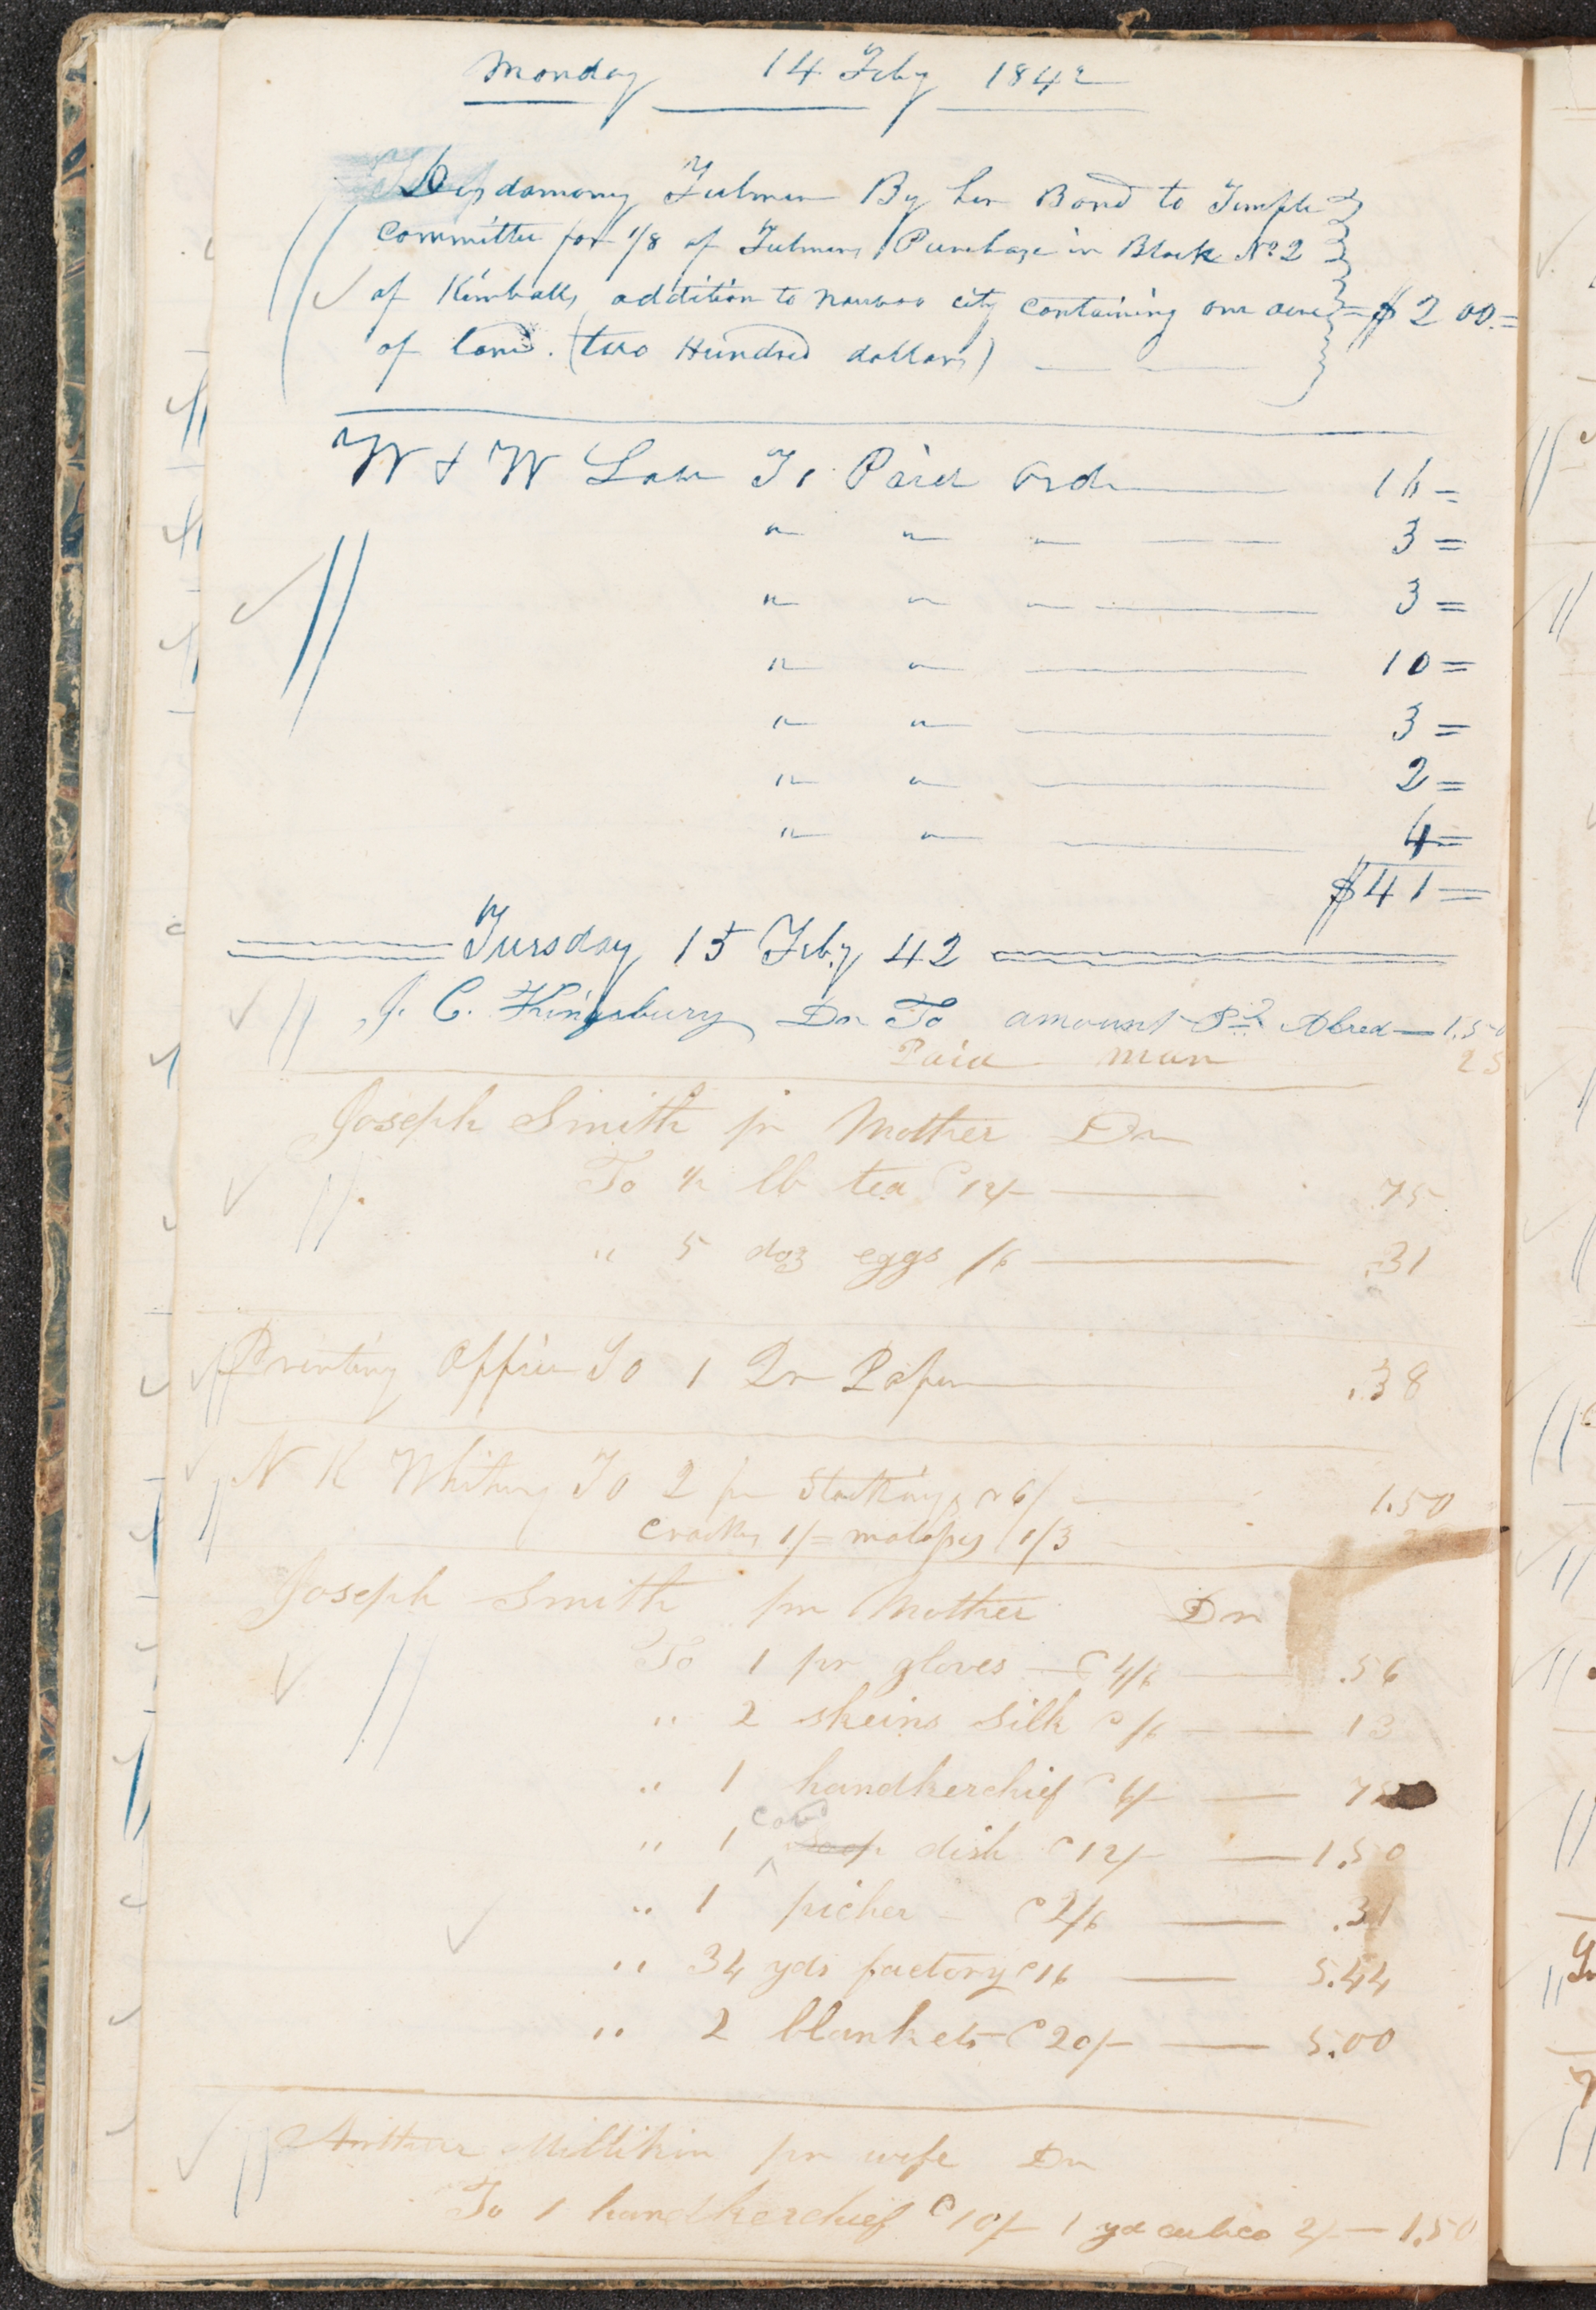 Monday 14 Feby 1842
Desdamony Fulmer By her Bond to Temple
committee for 1/8 of Fulmers Purchase in Block No 2
of Kimballs addition to nauvoo city containing one acre = $200.=
of land. (two Hundred dollars)
W & W Law To Paid Ord 16=
" " " 3=
" " " 3=
" " 10=
" " 3=
" " 2=
" " 4=
$41=
Tuesday 15 Feby 42
J. C. Kingsbury Dr To amount Pd Alred 1.50
Paid man 25
Joseph Smith pr Mother Dr
To ½ lb tea @ 12/- .75
" 5 doz eggs /6 .31
Printing Office To 1 Qr Paper .38
N K Whitney To 2 pr Stockings @ 6/ 1.50
Crackers 1/= molasses 1/3
Joseph Smith pr Mother Dr
To 1 pr gloves @ 4/6 .56
" 2 skeins silk @ /6 13
" 1 handkerchief @ 6/- 75
" 1 covd soap dish @ 12/- 1.50
" 1 picher @ 2/6 .31
" 34 yds factory @ 16 5.44
" 2 blankets @ 20/- 5.00
Arthur Millikin pr wife Dr
To 1 handkerchief @ 10/- 1 yd calico 2/- 1.50